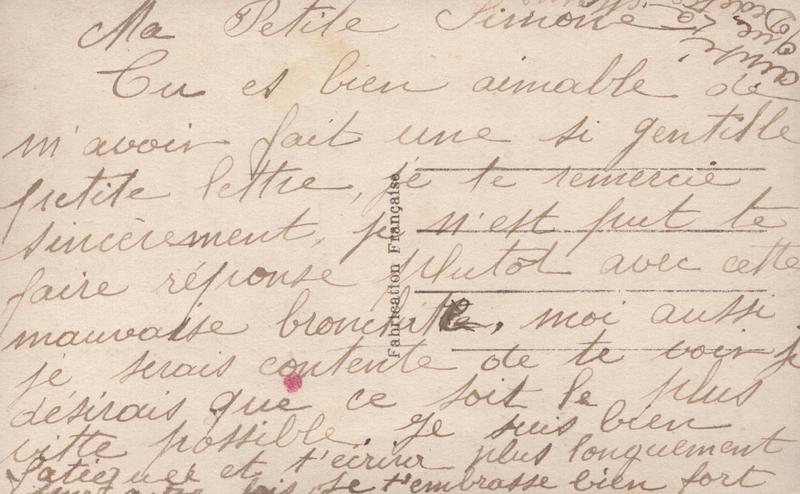 Ma Petite Simone
Tu es bien aimable de
m'avoir fait une si gentille
petite lettre, je te remercie
sincèrement, je n'est put te
faire réponse plutôt avec cette
mauvaise bronchite, moi aussi
je serais contente de te voir je
désirais que ce soit le plus
vitte possible. Je suis bien
fatiguée et t'écrirer plus longuement
fois je t'embrasse bien fort
Fabrication Française
que